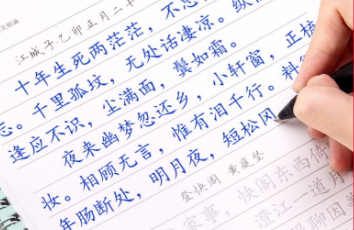 江城子·乙卯正月二十
十年生死两茫茫，不思
忘。千里孤坟，无处话凄凉。纵
逢应不识，尘满面，鬓如霜。
夜来幽梦忽还乡，小轩窗，正梳
妆。相顾无言，惟有泪千行。料
年肠断处，明月夜，短松冈
登快阁 黄庭坚
家事，快阁东西倚
澄江一道月
聊因